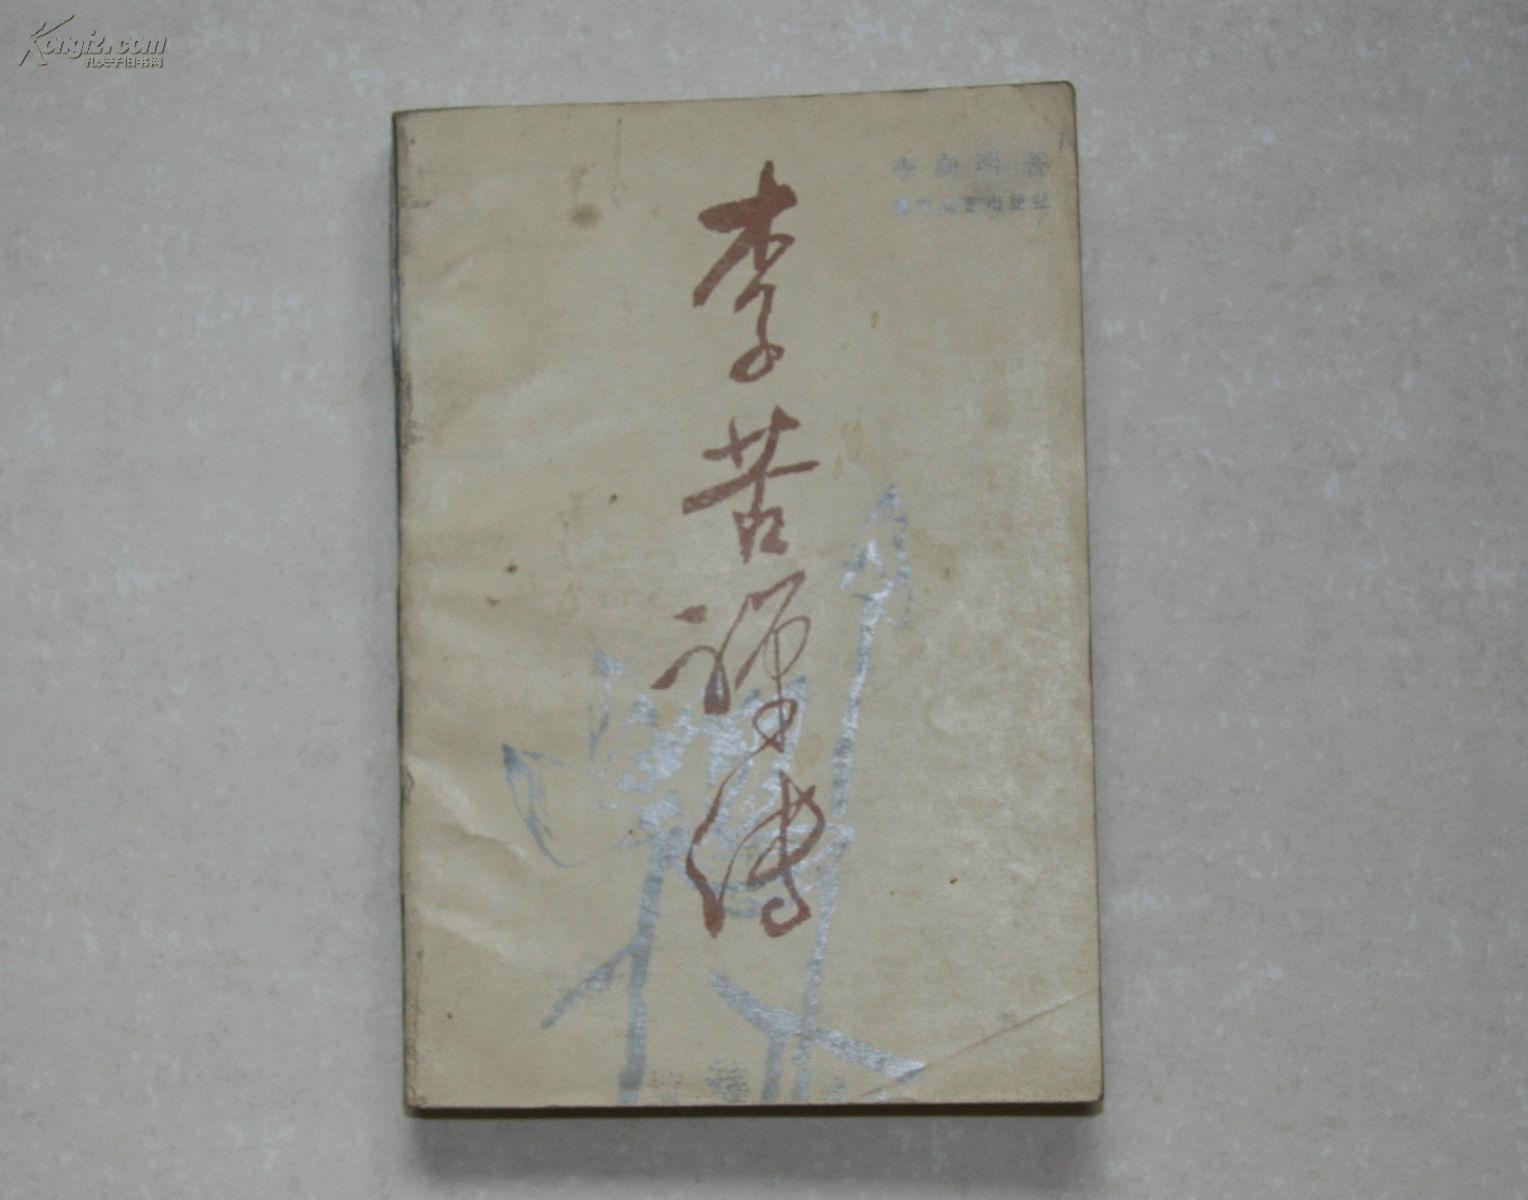 Kongfz.com
孔夫子旧书网
李苦禅传
李向明 著